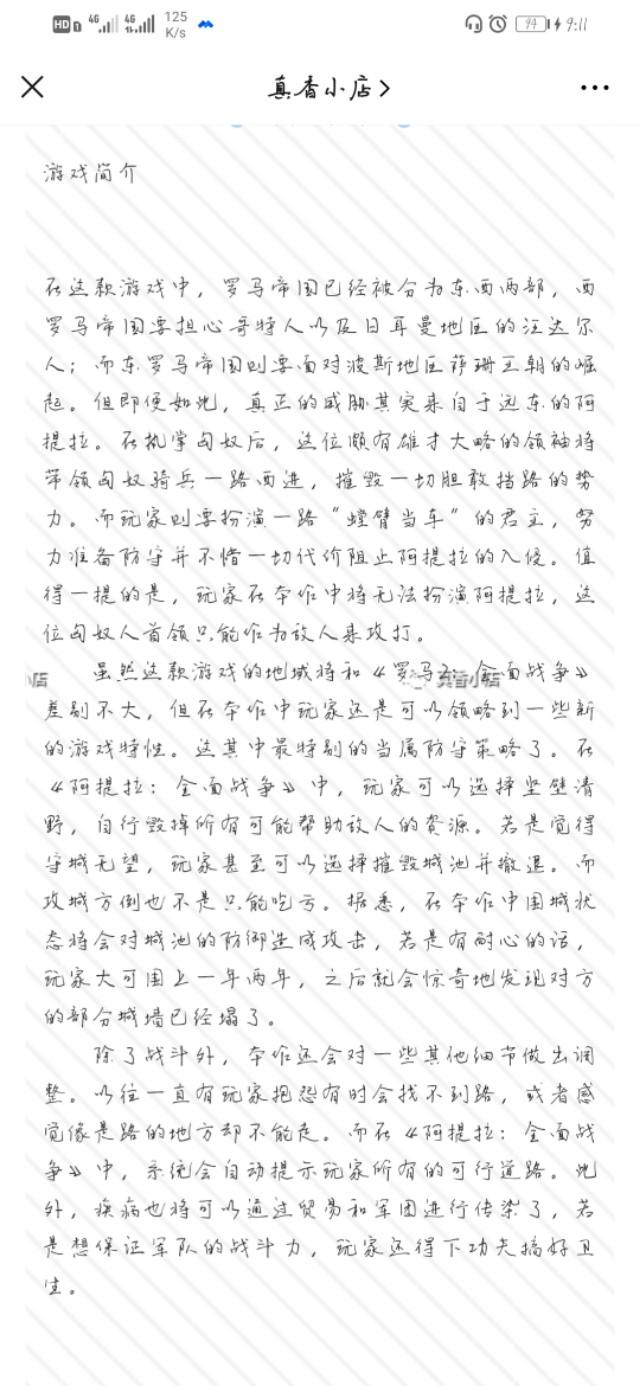 HD 1 4G 4G 125 K/s 94 9:11
真香小店>
游戏简介
在这款游戏中，罗马帝国已经被分为东西两部，西
罗马帝国要担心哥特人以及日耳曼地区的汪达尔
人；而东罗马帝国则要面对波斯地区萨珊王朝的崛
起。但即便如此，真正的威胁其实来自于远东的阿
提拉。在执掌匈奴后，这位颇有雄才大略的领袖将
带领匈奴骑兵一路西进，摧毁一切胆敢挡路的势
力。而玩家则要扮演一路“螳臂当车”的君主，努
力准备防守并不惜一切代价阻止阿提拉的入侵。值
得一提的是，玩家在本作中将无法扮演阿提拉，这
位匈奴人首领只能作为敌人来攻打。
虽然这款游戏的地域将和《罗马2：全面战争》
小店 真香小店
差别不大，但在本作中玩家还是可以领略到一些新
的游戏特性。这其中最特别的当属防守策略了。在
《阿提拉：全面战争》中，玩家可以选择坚壁清
野，自行毁掉所有可能帮助敌人的资源。若是觉得
守城无望，玩家甚至可以选择摧毁城池并撤退。而
攻城方倒也不是只能吃亏。据悉，在本作中围城状
态将会对城池的防御造成攻击，若是有耐心的话，
玩家大可围上一年两年，之后就会惊奇地发现对方
的部分城墙已经塌了。
除了战斗外，本作还会对一些其他细节做出调
整。以往一直有玩家抱怨有时会找不到路，或者感
觉像是路的地方却不能走。而在《阿提拉：全面战
争》中，系统会自动提示玩家所有的可行道路。此
外，疾病也将可以通过贸易和军团进行传染了，若
是想保证军队的战斗力，玩家还得下功夫搞好卫
生。